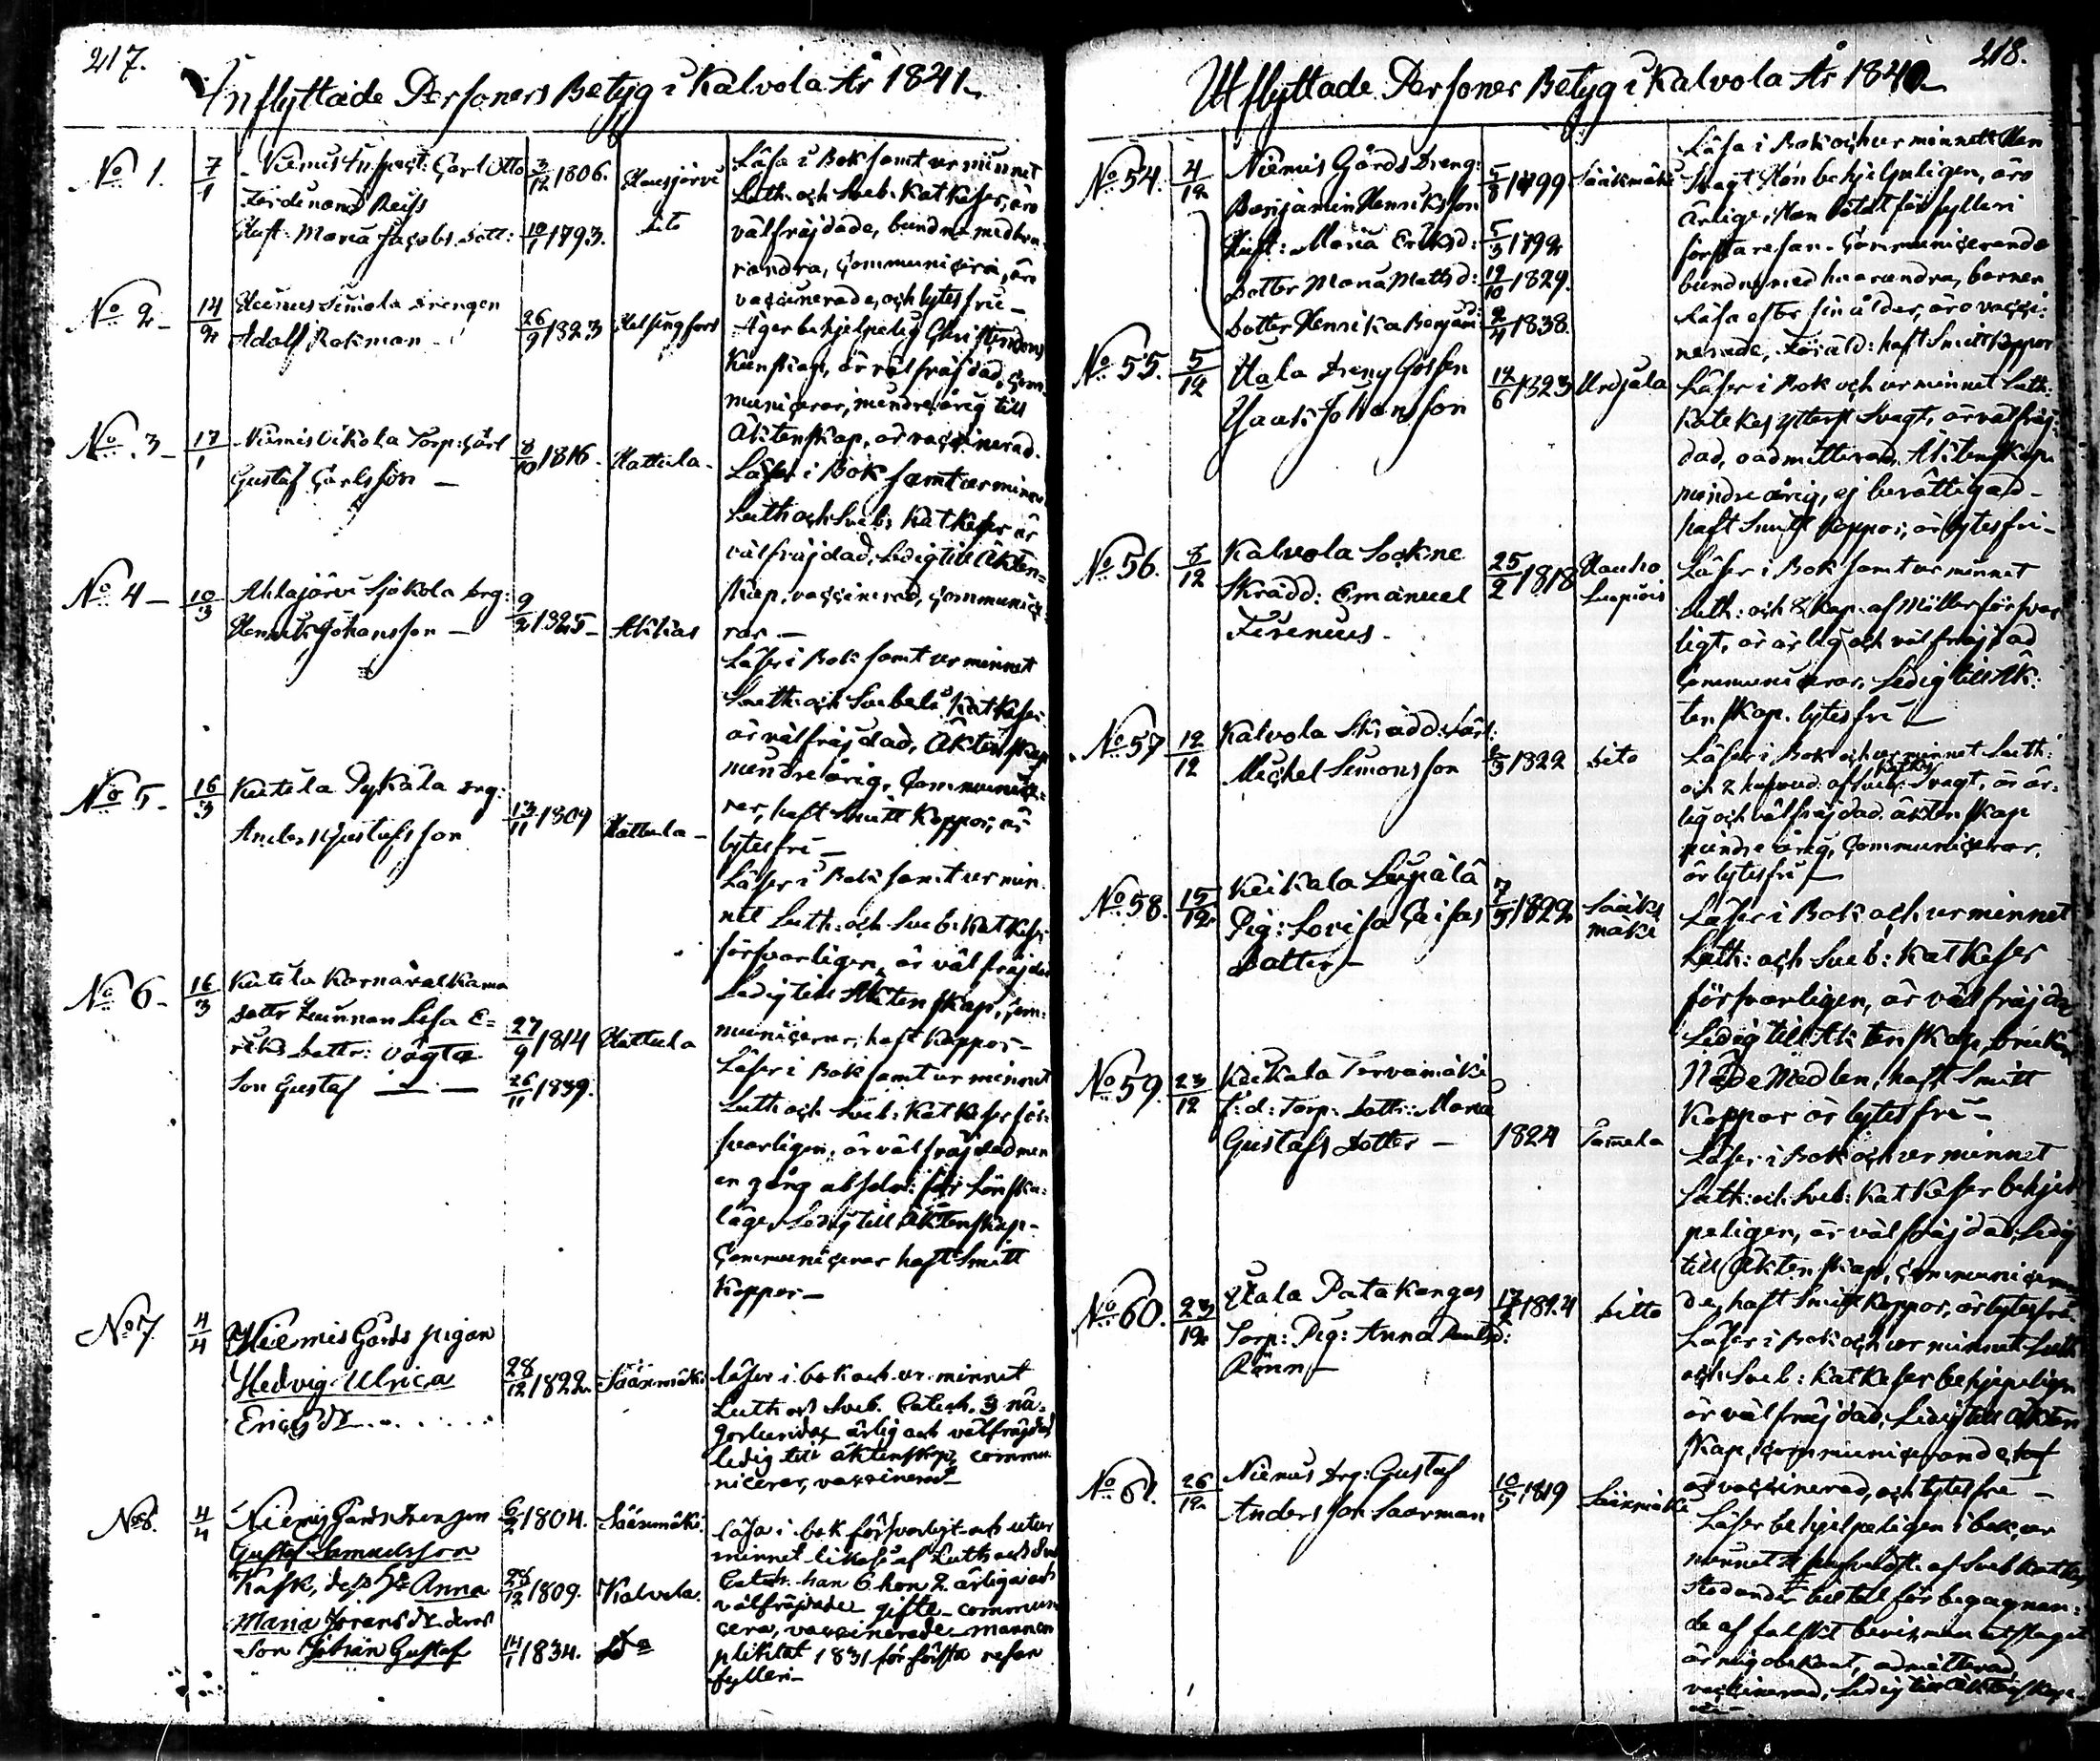 217.
Inflyttade Personers Betyg i Kalvola År 1841
No 1. 7/1 Niemis Inspect: Carl Otto 3/12 1806. Hausjärvi
Ferdinand Reiss
Hust: Maria Jacobs Dott: 10/1 1793. Dito
Läsa i Bok samt ur minnet
Luth. och Sveb. Katkeser, äro
välfräjdade, bundne med hva-
randra, Communicera, äro
vaccinerade, och lytesfrie
No 2 14/2 Simola Drengen
Adolf Rekman 26/9 1823 Helsingfors
Äger behjelpelig Christendoms
Kunskap, är välfräjdad, Com-
municerar, mindreårig till
Äktenskap, är vaccinerad.
No 3 17/1 Niemis Uikola Torp: Carl
Gustaf Carlsson 8/10 1816. Hattula
Läser i Bok samt ur minne
Luth och Sveb: Katkeser är
välfräjdad, Ledig till Äkten-
skap, vaccinerad, Communice-
rar
No 4 10/3 Ahlajärvi Sjökola Drg:
Henrik Johansson 9/2 1825 Akkas
Läser i Bok samt ur minnet
Luth: och Svebeli Katkeser
är välfräjdad, Äktenskap
mindreårig, Communice-
rar, haft Smitt Koppor, är
lytesfri
No 5 16/3 Kutila Pykälä Drg:
Anders Gustafsson 13/11 1809 Hattula
Läser i Bok samt ur min-
net Luth: och Sveb: Katkeser
försvarligen, är välfräjdad
Ledig till Äktenskap, Com-
municerar, haft Koppor
No 6 16/3 Kutila
Dottr Lisa E-
riks Dottr: oägta 27/9 1814 Hattula
Son Gustaf 26/11 1839.
Läser i Bok samt ur minnet
Luth och Sveb: Katkeser för-
svarligen, är välfräjdad men
en gång absolv: för Lönska-
läge, Ledig till Äktenskap
Communicerar haft Smitt
Koppor
No 7. 4/4 Niemis Gårds pigan
Hedvig Ulrica 28/12 1822. Sääxmäki
Ericsdr
läser i bok och ur minnet
Luth och Sveb. Catech. 3 nå-
gorlunda, ärlig och välfräjdad
ledig till äktenskap, commu-
nicerar, vaccinerad
No 8. 4/4 Niemis Gårds Drengen 6/2 1804. Sääxmäki.
Gustaf Samuelsson
Kask, dess Hu Anna 28/12 1809. Kalvola
Maria Göransdr deras
Son Johan Gustaf 14/1 1834. Do
läsa i bok försvarligt och utur
minnet likaså af Luth och Sveb
Catech. han 6 hon 2. ärliga och
välfräjdade gifte communi-
cera, vaccinerade mannen
pliktat 1831 för första resan
fylleri
218.
Utflyttade Personers Betyg i Kalvola År 1840
No 54. 4/12 Niemis Gårds Dreng:
Benjamin Henriksson 5/8 1799 Sääkmäki
Hust: Maria Eriksd: 5/3 1792
Dotter Maria Mattsd: 19/10 1829.
Dotter Henrika Benjamd: 2/4 1838.
Läsa i Bok och ur minnet Han
Svagt Hon behjelpligen, äro
ärlige, Han bötat för fylleri
första resan. Communicerande
bundne med hvarandra, barnen
Läsa efter sin ålder, äro vacci-
nerade, Föräld: haft Smittkoppor
No 55. 5/12 Uala Dreng Gossen
Isaak Johansson 14/6 1823 Urdjala
Läser i Bok och ur minnet Luth:
Katekes ytterst Svagt, är välfräj-
dad, oadmitterad, Äktenskap
mindreårig, ej berättigad
haft Smitt Koppor, är lytesfri
No 56. 8/12 Kalvola Sockne
Skrädd: Emanuel 25/2 1818 Hauho
Ferenius. Luopiois
Läser i Bok samt ur minnet
Luth: och 8 kap. af Möller försvar-
ligt, är ärlig och välfräjdad
Communicerar, Ledig till Äk-
tenskap. lytesfri
No 57 12/12 Kalvola Skrädd: Lärl:
Michel Simonsson 8/3 1822 Dito
Läser i Bok och ur minnet Luth:
och 2 af Sveb: Katkes Svagt, är är-
lig och välfräjdad. äktenskap
mindreårig, Communicerar,
är lytesfri
No 58. 15/12 Keikala Lupälä
Pig: Lovisa Caisas 7/5 1822 Sääks
Dotter mäki
Läser i Bok och ur minnet
Luth: och Sveb: Katkeser
försvarligen, är välfräjdad
Ledig till Äktenskap, brukar
Nådemedlen, haft Smitt
Koppor är lytesfri
No 59. 23/12 Keikala Tervamäki
f:d: Torp: Dottr: Maria
Gustafs Dotter 1824 Tamela
Läser i Bok och ur minnet
Luth: och Sveb: Katkeser behjel-
peligen, är välfräjdad, Ledig
till Äktenskap, Communiceran-
de, haft Smitt Koppor, är lytesfri
No 60. 23/12 Uala Patakangas 1824 Ditto
Torp: Pig: Anna Paulsd:
Rönn
Läser i Bok och ur minnet Luth
och Sveb: Katkeser behjepeligen
är välfräjdad, Ledig till Äkten
skap, communicerande,
är vaccinerad, och lytesfri
No 61. 26/12 Niemis Drg: Gustaf
Andersson Saarman 10/5 1819 Sääxmäki
Läser behjelpeligen i bok, ur
minnet af Sveb Katkes
för begagnan-
de af falskt bevis, men utslaget
är mig obekant, admitterad
vaccinerad, Ledig till Äktenskap